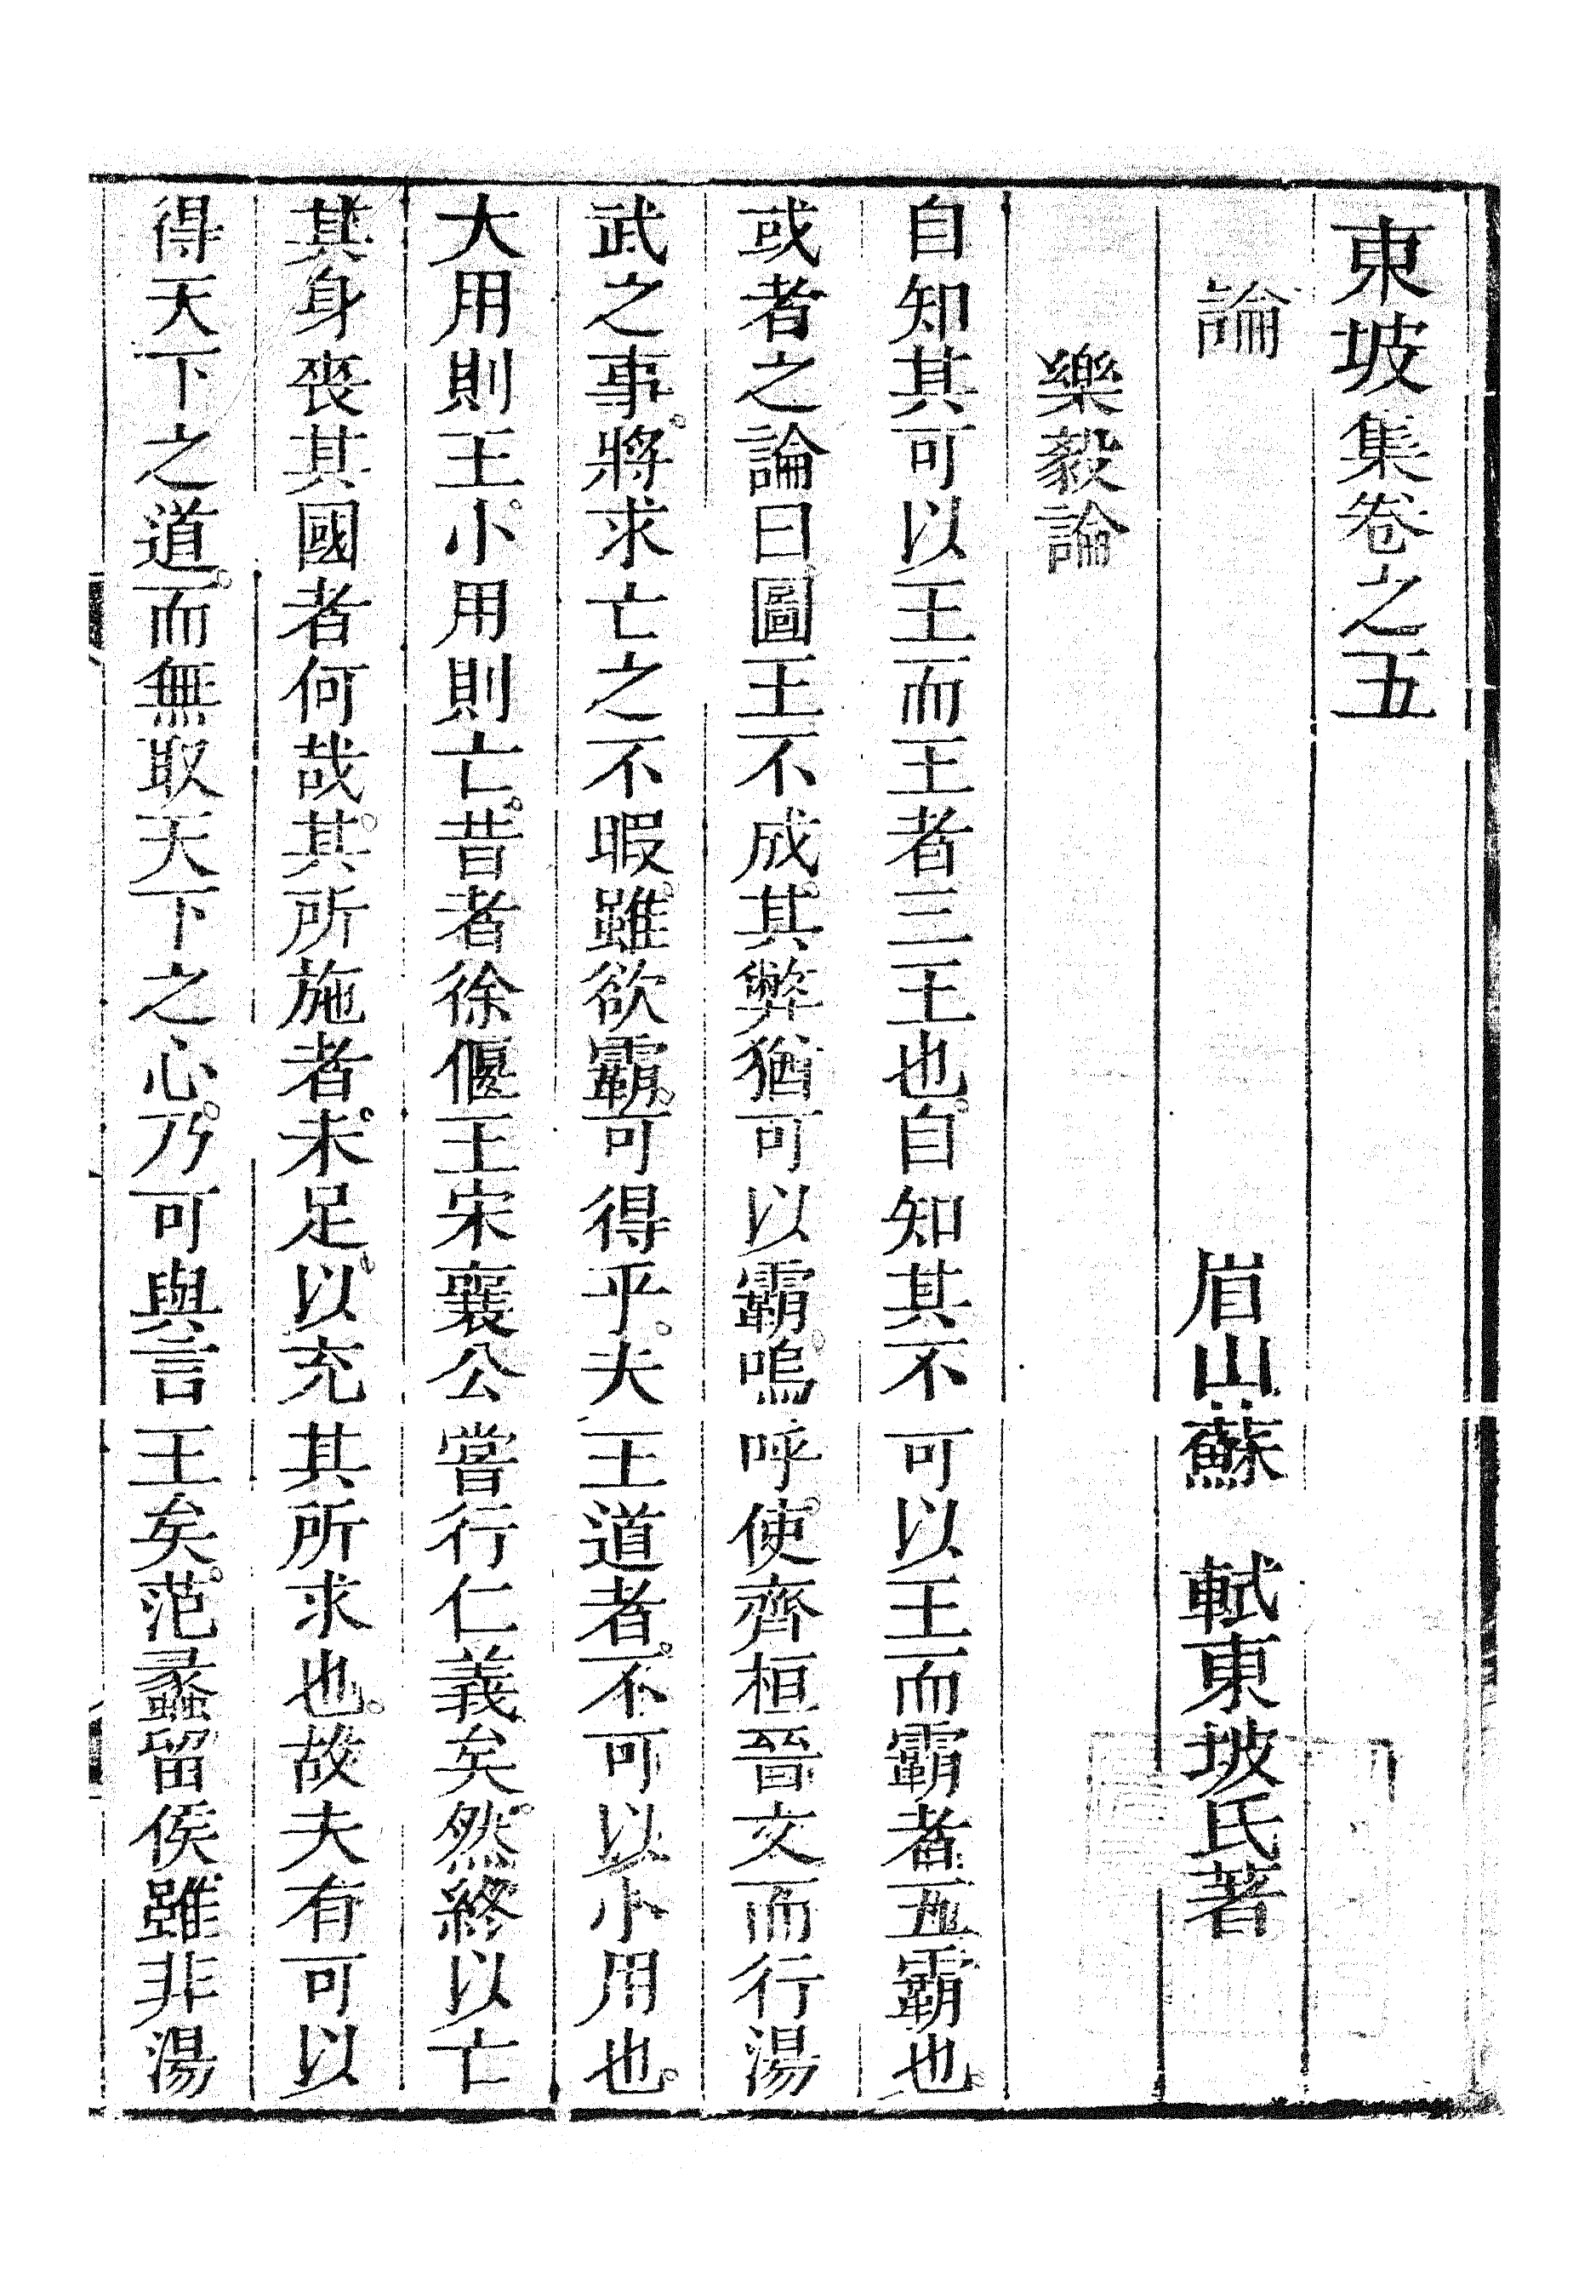 東坡集卷之五
論　眉山蘇　軾東坡氏著
樂毅論
自知其可以王而王者三王也自知其不可以王而霸者五霸也
或者之論曰圖王不成其弊猶可以霸嗚呼使齊桓晉文而行湯
武之事將求亡之不暇雖欲霸可得乎夫王道者不可以小用也
大用則王小用則亡昔者徐偃王宋襄公嘗行仁義矣然終以亡
其身喪其國者何哉其所施者未足以充其所求也故夫有可以
得天下之道而無取天下之心乃可與言王矣范蠡留侯雖非湯